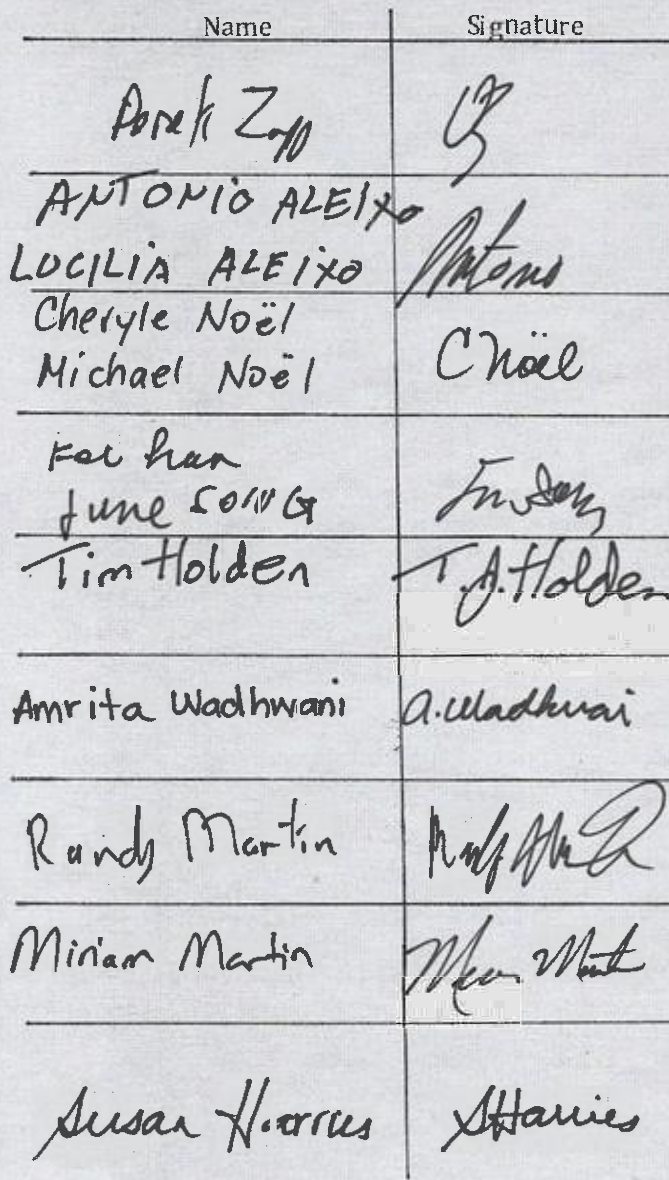 Name Signature
Derek Zapp
ANTONIO ALEIXO
LUCILIA ALEIXO Antonio
Cheryle Noël
Michael Noël C Noël
June SONG
Tim Holden T.A. Holden
Amrita Wadhwani A. Wadhwani
Randy Martin
Miriam Martin
Susan Harries SHarries